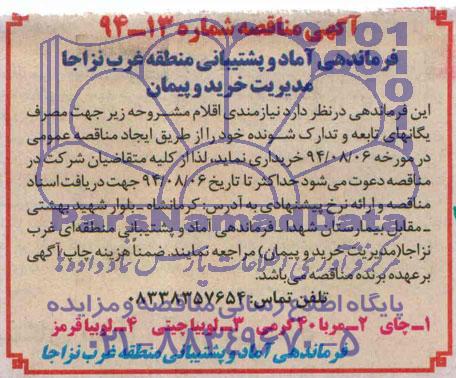 آگهی مناقصه شماره ۱۳-۹۴
فرماندهی آماد و پشتیبانی منطقه غرب نزاجا
مدیریت خرید و پیمان
این فرماندهی در نظر دارد نیازمندی اقلام مشروحه زیر جهت مصرف
یگانهای تابعه و تدارک شونده خود را از طریق ایجاد مناقصه عمومی
در مورخه ۹۴/۰۸/۰۶ خریداری نماید، لذا از کلیه متقاضیان شرکت در
مناقصه دعوت می‌شود حداکثر تا تاریخ ۹۴/۰۸/۰۶ جهت دریافت اسناد
مناقصه و ارائه نرخ پیشنهادی به آدرس: کرمانشاه - بلوار شهید بهشتی
- مقابل بیمارستان شهدا - فرماندهی آماد و پشتیبانی منطقه‌ای غرب
نزاجا (مدیریت خرید و پیمان) مراجعه نمایند. ضمناً هزینه چاپ آگهی
بر عهده برنده مناقصه می‌باشد.
تلفن تماس: ۰۸۳۳۸۳۵۷۶۵۴
۱- چای ۲- مربا ۴۰ گرمی ۳- لوبیا چیتی ۴- لوبیا قرمز
فرماندهی آماد و پشتیبانی منطقه غرب نزاجا
ParsNamadData
مرکز فرآوری اطلاعات پارس نماد داده‌ها
پایگاه اطلاع رسانی مناقصه و مزایده
۰۲۱-۸۸۳۴۹۶۷۰-۵